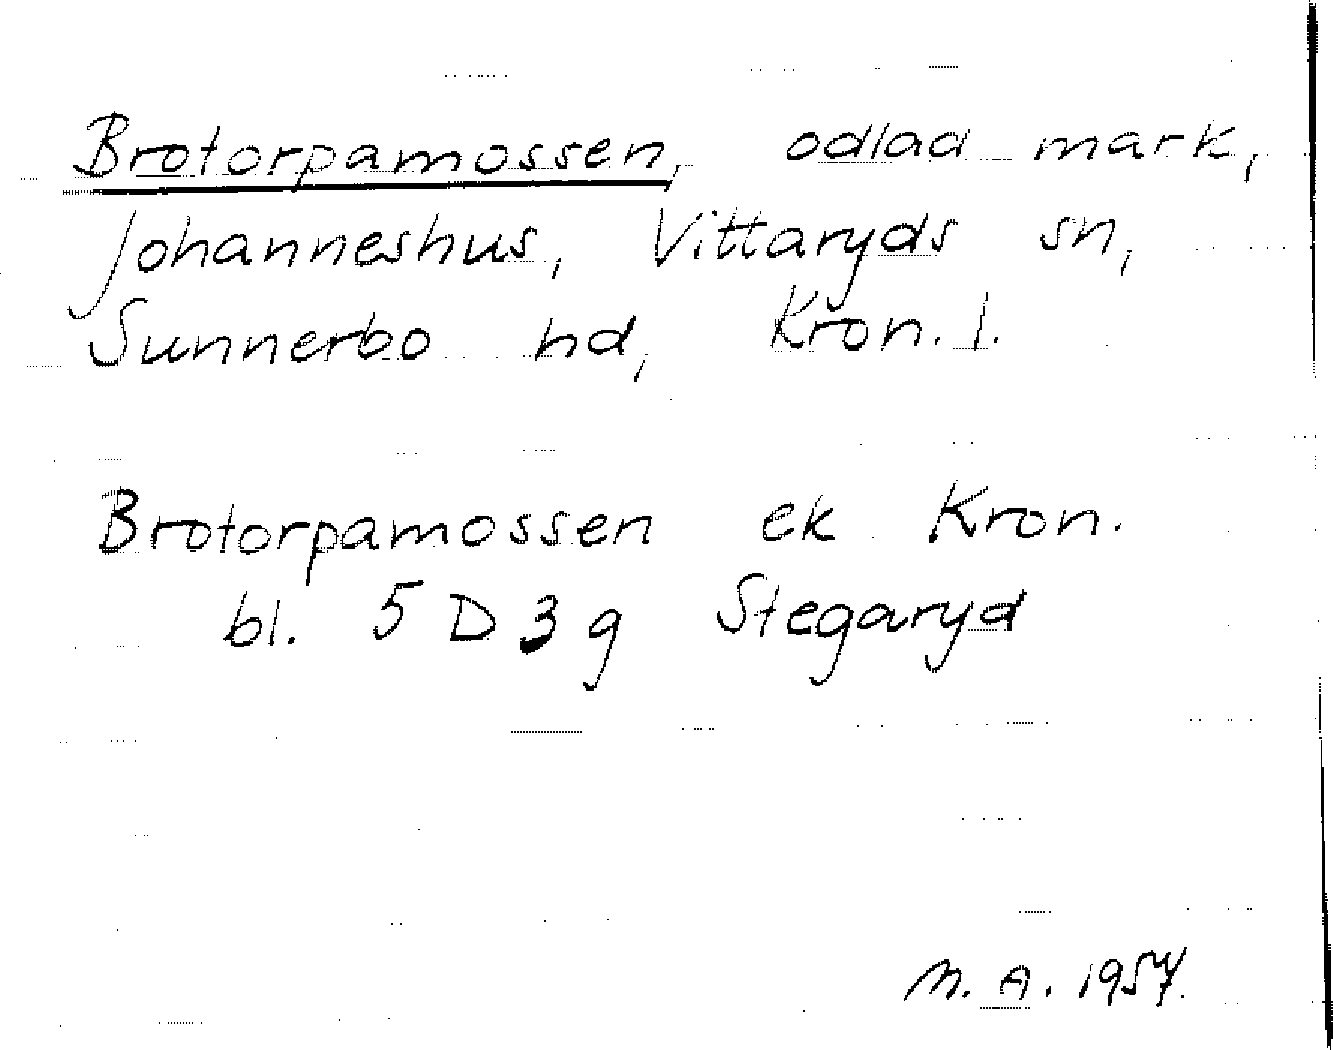 Brotorpamossen, odlad mark,
Johanneshus, Vittaryds sn,
Sunnerbo hd, Kron. l.
Brotorpamossen ek Kron.
bl. 5 D 3 g Stegaryd
M. A. 1957.